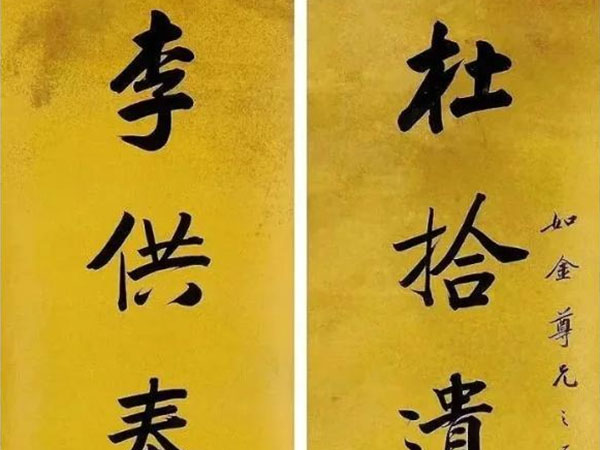 杜拾遺
如金尊兄之
李供奉